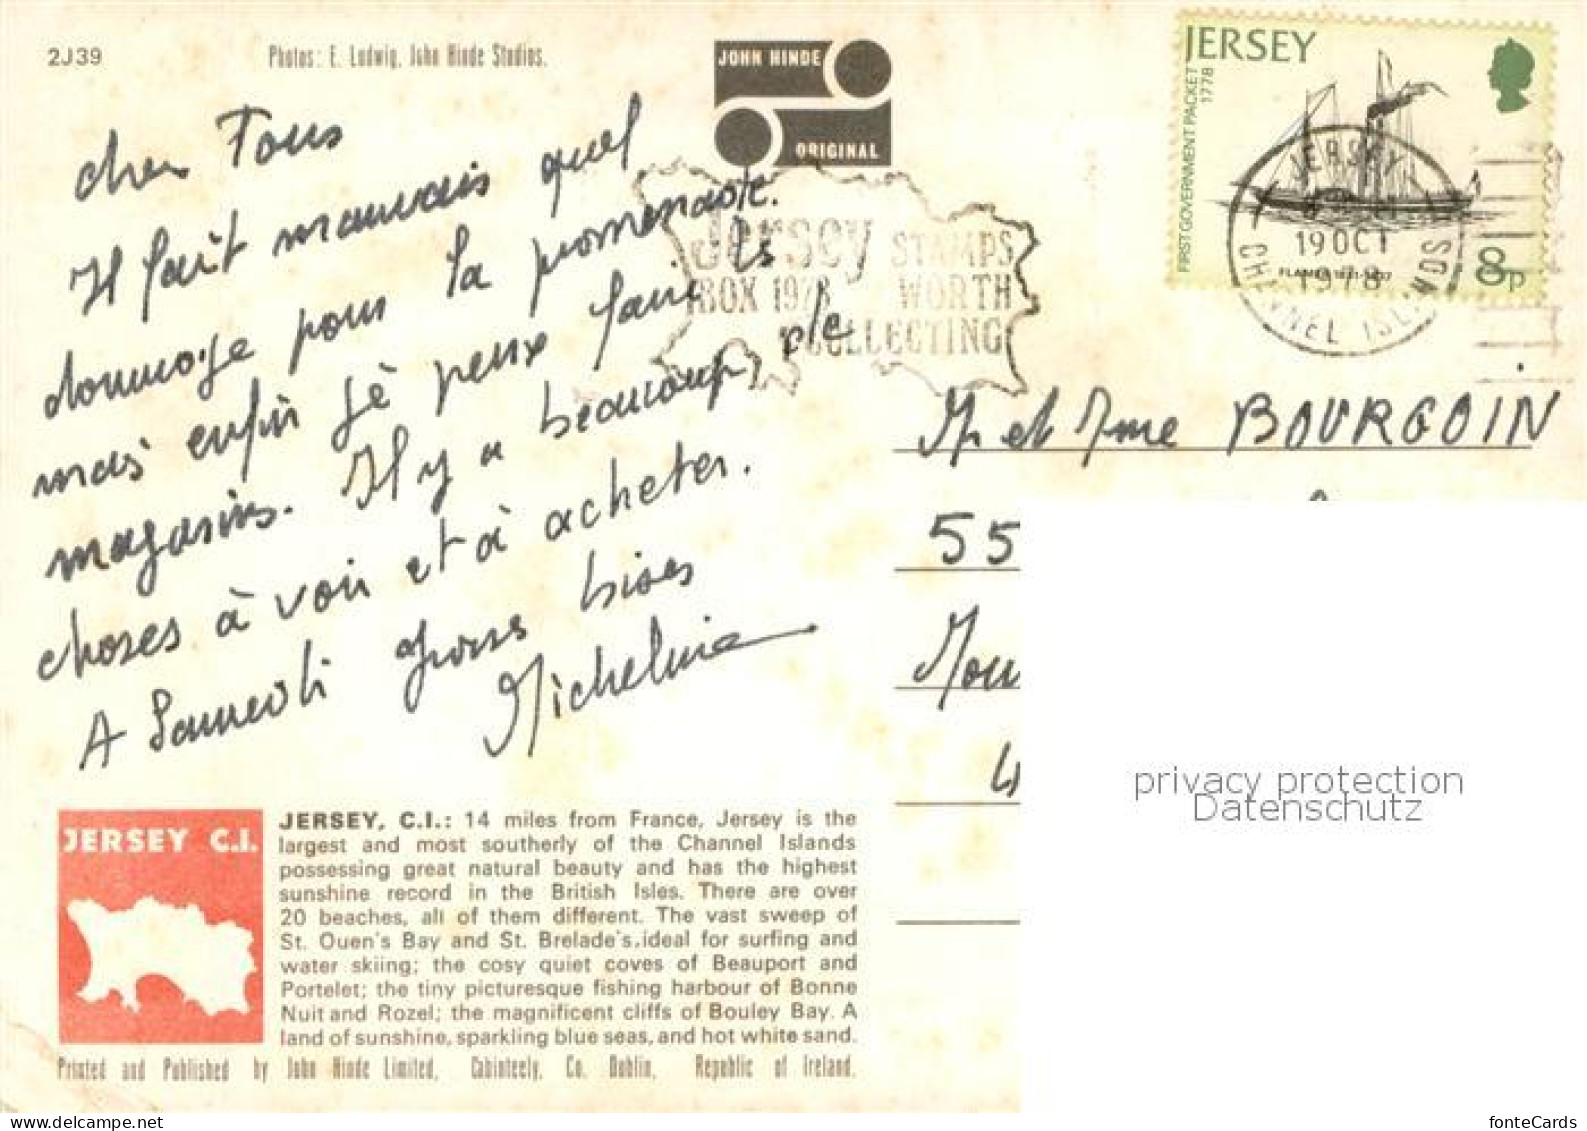 2J39
Photos: E. Ludwig, John Hinde Studios.
JOHN HINDE
ORIGINAL
JERSEY
FIRST GOVERNMENT PACKET
1778
8p
JERSEY
19 OCT
1978
CHANNEL ISLANDS
Jersey STAMPS
BOX 1978 WORTH
COLLECTING
cher Tous
Il fait mauvais quel
dommage pour la promenade.
mais enfin jè peux faire ls
magasins. Il y a beaucoup de
choses à voir et à acheter.
A Samedi grosses bises
Micheline
Mr et Mme BOURGOIN
55
Mon
4
privacy protection
Datenschutz
JERSEY C.I.
JERSEY, C.I.: 14 miles from France, Jersey is the
largest and most southerly of the Channel Islands
possessing great natural beauty and has the highest
sunshine record in the British Isles. There are over
20 beaches, all of them different. The vast sweep of
St. Ouen's Bay and St. Brelade's, ideal for surfing and
water skiing; the cosy quiet coves of Beauport and
Portelet; the tiny picturesque fishing harbour of Bonne
Nuit and Rozel; the magnificent cliffs of Bouley Bay. A
land of sunshine, sparkling blue seas, and hot white sand.
Printed and Published by John Hinde Limited, Cabinteely, Co. Dublin, Republic of Ireland.
fonteCards